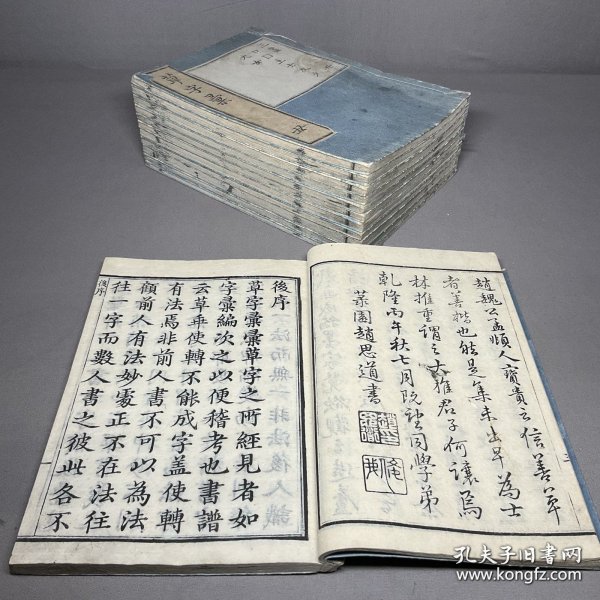 草字彙
趙魏公孟頫人寶貴之信善草
者善楷也然是集未出早為士
林推重謂之大雅君子何讓焉
乾隆丙午秋七月既望同學弟
菉園趙思道書
後序
草字彙彙草字之所經見者如
字彙編次之以便稽考也書譜
云草乖使轉不能成字盖使轉
有法焉非前人書不可以為法
顧前人有法妙處正不在法往
往一字而數人書之彼此各不
後序
孔夫子旧书网
www.kongfz.com